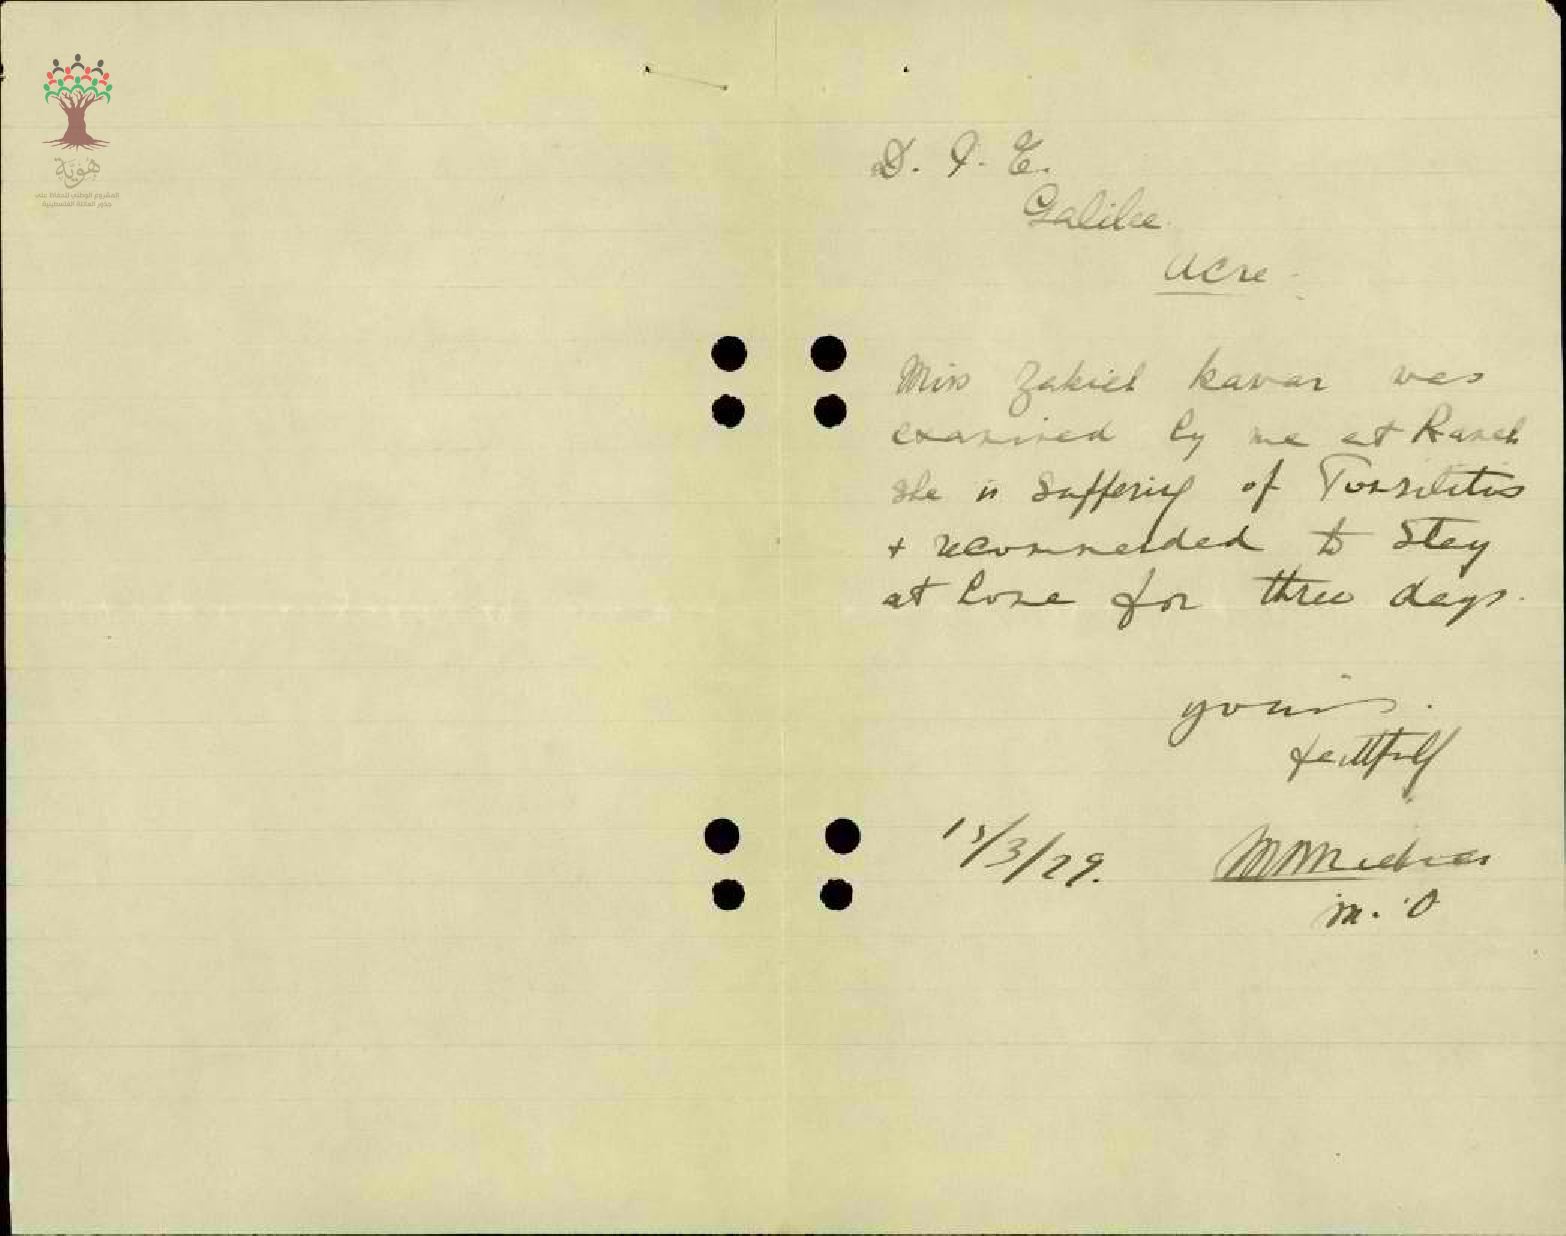 هوية
المشروع الوطني للحفاظ على
جذور العائلة الفلسطينية
D. I. E.
Galilee
Acre
Miss Zakieh Kawar was
examined by me at Rameh
She is suffering of Tonsilitis
+ recommended to Stay
at home for three days.
yours.
faithfully
/3/29.
M. O